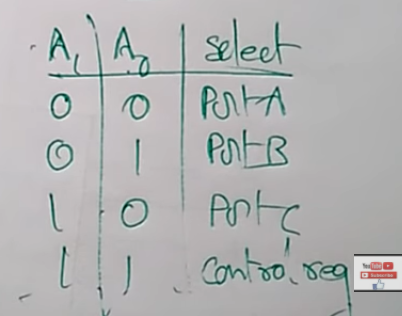 A1 A0 select
0 0 Port A
0 1 Port B
1 0 Port C
1 1 Control reg
YouTube
Subscribe